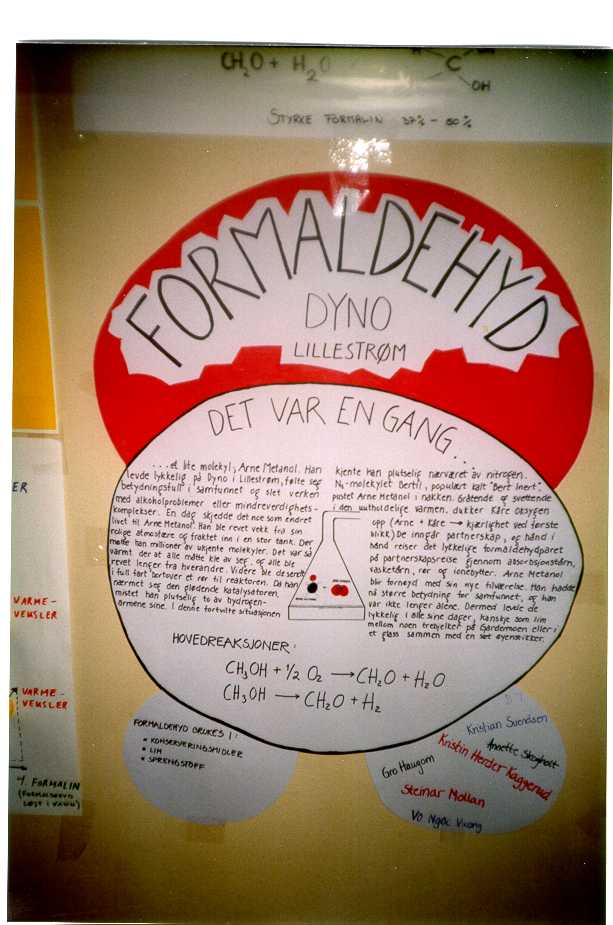 CH₂O + H₂O
C
OH
STYRKE FORMALIN 37% - 50%
FORMALDEHYD
DYNO
LILLESTRØM
DET VAR EN GANG...
...et lite molekyl, Arne Metanol. Han
levde lykkelig på Dyno i Lillestrøm, følte seg
betydningsfull i samfunnet og slet verken
med alkoholproblemer eller mindreverdighets-
komplekser. En dag skjedde det noe som endret
livet til Arne Metanol. Han ble revet vekk fra sin
rolige atmosfære og fraktet inn i en stor tank. Der
møtte han millioner av ukjente molekyler. Det var så
varmt der at alle måtte kle av seg, og alle ble
revet lenger fra hverandre. Videre ble de sendt
i full fart bortover et rør til reaktoren. Da han
nærmet seg den glødende katalysatoren,
mistet han plutselig to av hydrogen-
armene sine. I denne fortvilte situasjonen
kjente han plutselig nærværet av nitrogen.
N₂-molekylet Bertil, populært kalt "Bert Inert",
pustet Arne Metanol i nakken. Gråtende og svettende
i den uutholdelige varmen, dukker Kåre Oksygen
opp (Arne + Kåre → kjærlighet ved første
blikk) De inngår partnerskap, og hånd i
hånd reiser det lykkelige formaldehydparet
på partnerskapsreise gjennom absorbsjonstårn,
vasketårn, rør og ionebytter. Arne Metanol
blir fornøyd med sin nye tilværelse. Han hadde
nå større betydning for samfunnet, og han
var ikke lenger alene. Dermed levde de
lykkelig i alle sine dager, kanskje som lim
mellom noen trebjelker på Gardermoen eller i
et glass sammen med en søt øyenstikker.
HOVEDREAKSJONER:
CH₃OH + 1/2 O₂ → CH₂O + H₂O
CH₃OH → CH₂O + H₂
FORMALDEHYD BRUKES I:
* KONSERVERINGSMIDLER
* LIM
* SPRENGSTOFF
Kristian Svendsen
Annette Skogholt
Kristin Herder Kaggerud
Gro Haugom
Steinar Mollan
Vo Ngoc Vuong
ER
VARME-
VEKSLER
VARME-
VEKSLER
FORMALIN
(FORMALDEHYD
LØST I VANN)